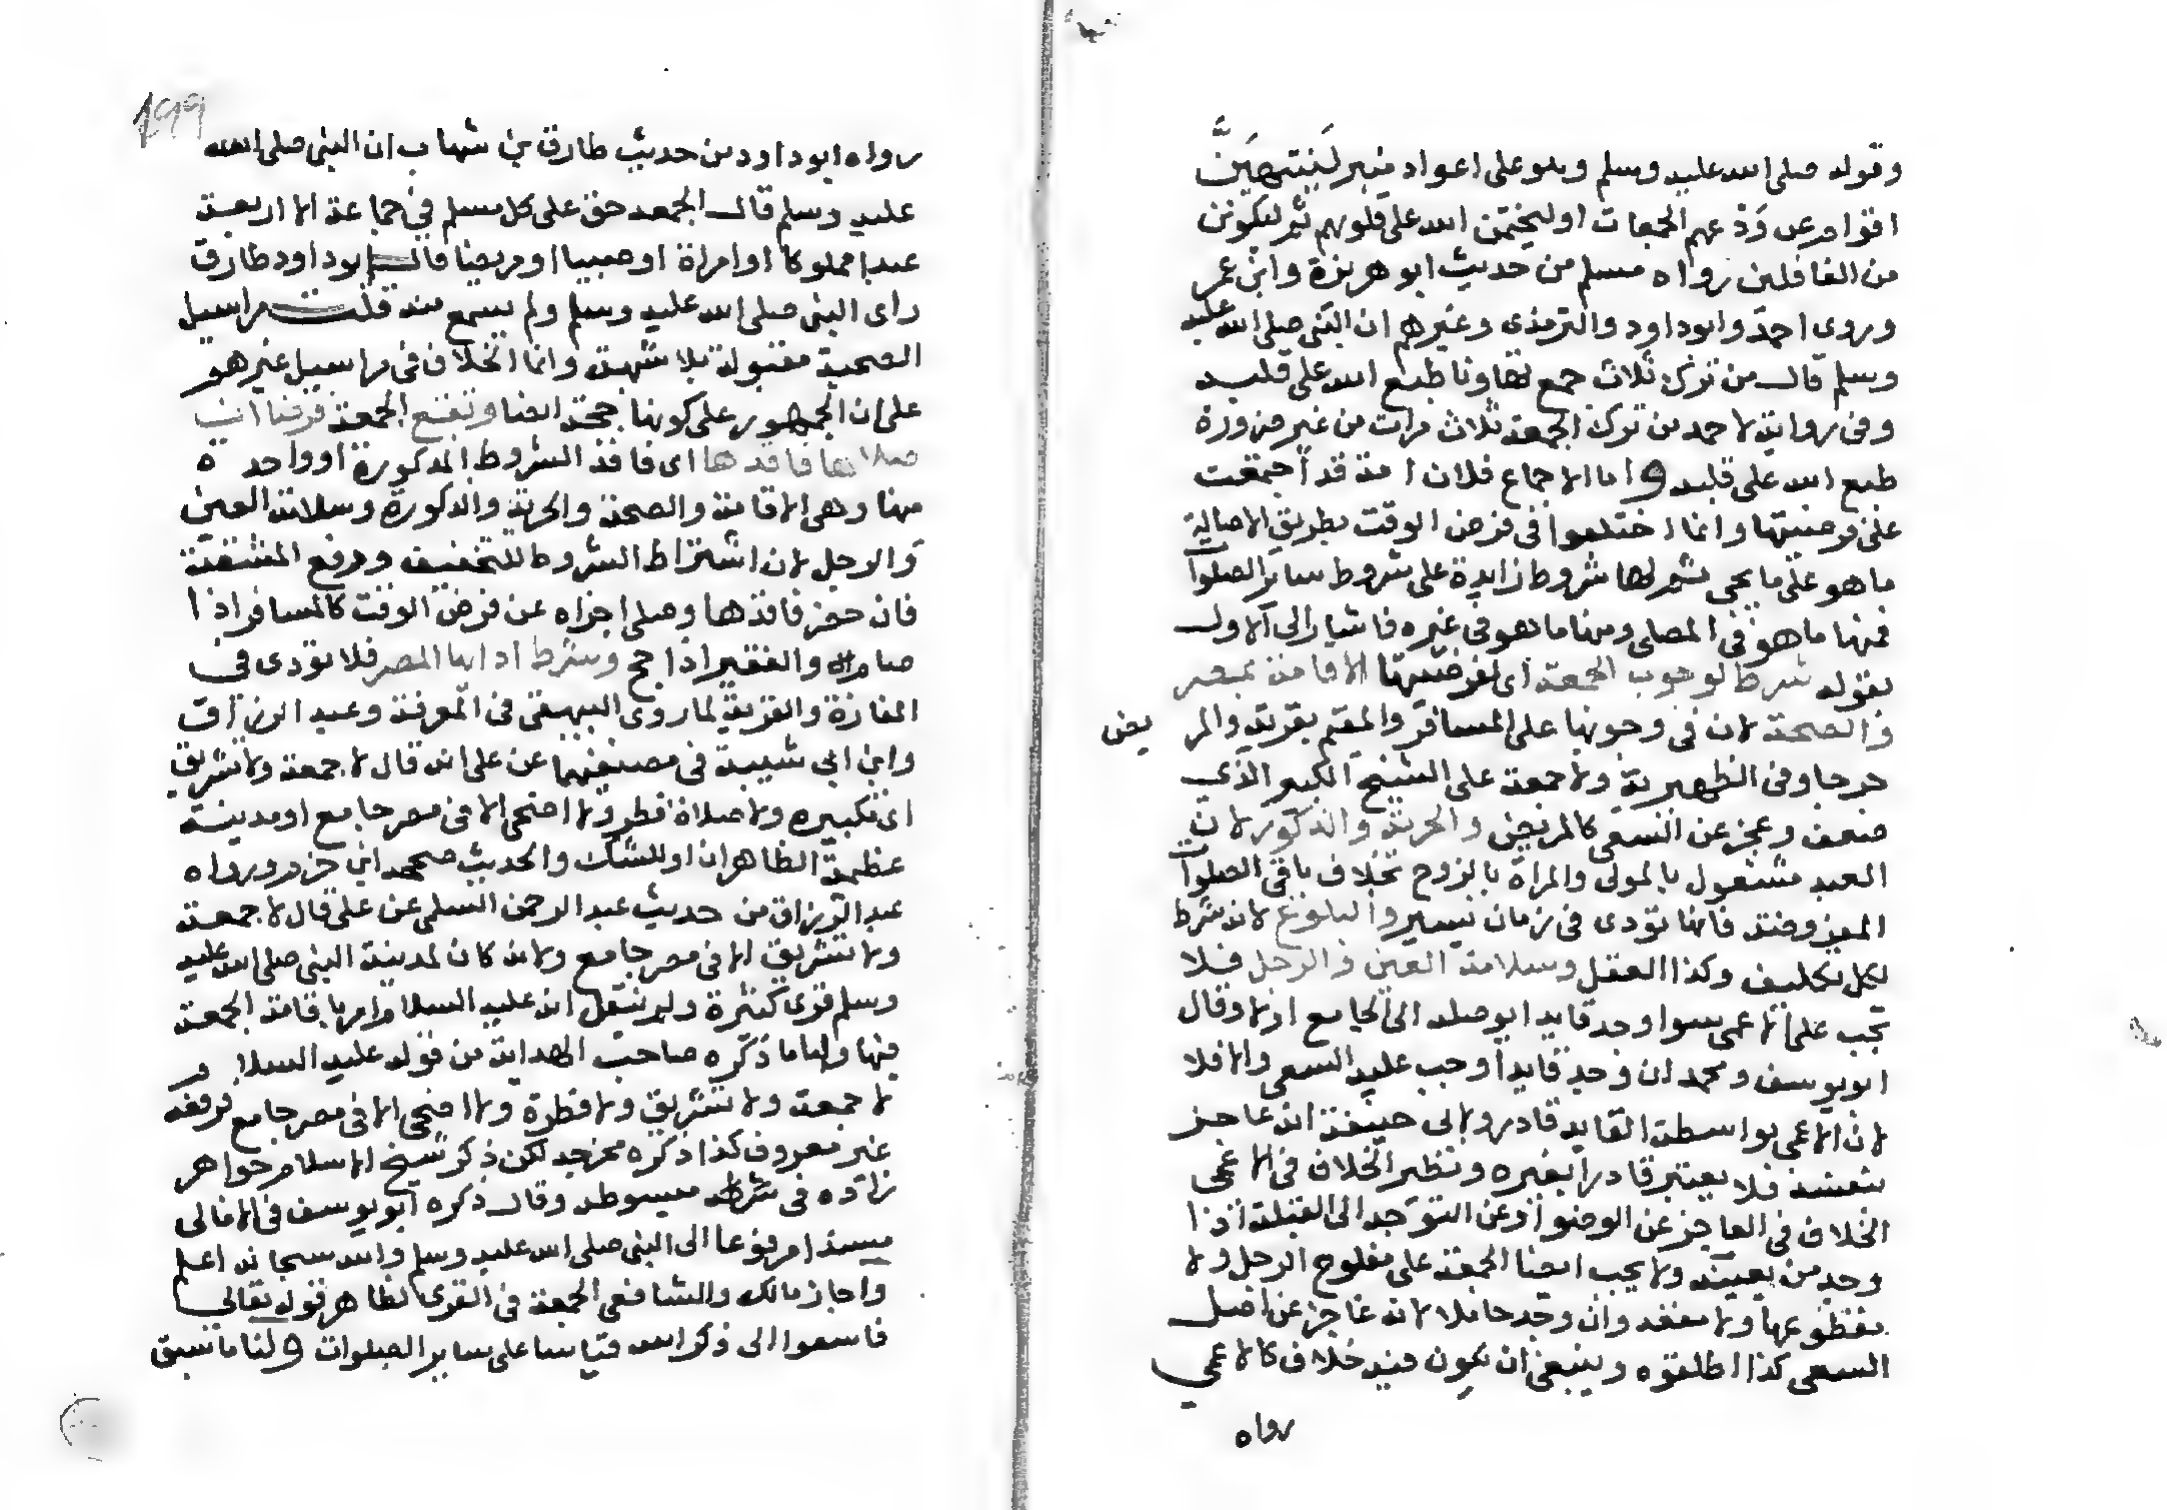 وقوله صلى الله عليه وسلم وهو على اعواد منبر لَيَنتهِيَنَّ
اقوام عن وَدْعهم الجمعات او ليختمن الله على قلوبهم ثم ليكونن
من الغافلين رواه مسلم من حديث ابو هريرة وابن عمر
وروى احمد وابو داود والترمذى وغيرهم ان النبى صلى الله عليه
وسلم قال من ترك ثلاث جمع تهاونا طبع الله على قلبه
وفى رواية لاحمد من ترك الجمعة ثلاث مرات من غير ضرورة
طبع الله على قلبه واما الاجماع فلان الامة قد اجتمعت
على فرضيتها وانما اختلفوا فى فرض الوقت بطريق الاصالة
ما هو على ما يجى ثم لها شروط زايدة على شروط ساير الصلوات
فمنها ما هو فى المصلى ومنها ما هو فى غيره فاشار الى الاول
بقوله شرط لوجوب الجمعة اى لفرضيتها الاقامة بمصر
والصحة لان فى وجوبها على المسافر والمقيم بقرية والمريض
حرجا وفى الظهيرية ولا جمعة على الشيخ الكبير الذى
ضعف وعجز عن السعى كالمريض والحرية والذكور لان
العبد مشغول بالمولى والمراة بالزوج بخلاف باقى الصلوات
المفروضة فانها تؤدى فى زمان يسير والبلوغ لانه شرط
لكل تكليف وكذا العقل وسلامة العين والرجل فلا
تجب على الاعمى سوا وجد قايدا يوصله الى الجامع او لا وقال
ابو يوسف ومحمد ان وجد قايدا وجب عليه السعى والا فلا
لان الاعمى بواسطة القايد قادر ولابى حنيفة انه عاجز
بنفسه فلا يعتبر قادرا بغيره ونظير الخلاف فى الاعمى
الخلاف فى العاجز عن الوضو او عن التوجه الى القبلة اذا
وجد من يعينه ولا يجب ايضا الجمعة على مفلوج الرجل ولا
مقطوعها ولا مقعد وان وجد حاملا لانه عاجز عن اصل
السعى كذا اطلقوه وينبغى ان يكون فيه خلاف كالاعمى
رواه
199
رواه ابو داود من حديث طارق بن شهاب ان النبى صلى الله
عليه وسلم قال الجمعة حق على كل مسلم فى جماعة الا اربعة
عبدا مملوكا او امراة او صبيا او مريضا قال ابو داود طارق
راى النبى صلى الله عليه وسلم ولم يسمع منه قلت مراسيل
الصحبة مقبولة بلا شبهة وانما الخلاف فى مراسيل غيرهم
على ان الجمهور على كونها حجة ايضا وتقع الجمعة فرضا ان
صلاها فاقدها اى فاقد الشروط المذكورة او واحدة
منها وهى الاقامة والصحة والحرية والذكورة وسلامة العين
والرجل لان اشتراط الشروط للتخفيف ورفع المشقة
فان حضر فاقدها وصلى اجزاه عن فرض الوقت كالمسافر اذا
صام والفقير اذا حج وشرط ادايها المصر فلا تؤدى فى
المفازة والقرية لما روى البيهقى فى المعرفة وعبد الرزاق
وابن ابى شيبة فى مصنفيهما عن على انه قال لا جمعة ولا تشريق
اى تكبيره ولا صلاة فطر ولا اضحى الا فى مصر جامع او مدينة
عظيمة الظاهر ان او للشك والحديث صححه ابن حزم ورواه
عبد الرزاق من حديث عبد الرحمن السلمى عن على قال لا جمعة
ولا تشريق الا فى مصر جامع ولانه كان لمدينة النبى صلى الله عليه
وسلم قرى كثيرة ولم ينقل انه عليه السلام امر باقامة الجمعة
فيها واما ما ذكره صاحب الهداية من قوله عليه السلام
لا جمعة ولا تشريق ولا فطرة ولا اضحى الا فى مصر جامع فرفعه
غير معروف كذا ذكره مخرجه لكن ذكر شيخ الاسلام خواهر
زاده فى مبسوطه وقال ذكره ابو يوسف فى الامالى
مسندا مرفوعا الى النبى صلى الله عليه وسلم والله سبحانه اعلم
واجاز مالك والشافعى الجمعة فى القرى لظاهر قوله تعالى
فاسعوا الى ذكر الله قياسا على ساير الصلوات ولنا ما سبق